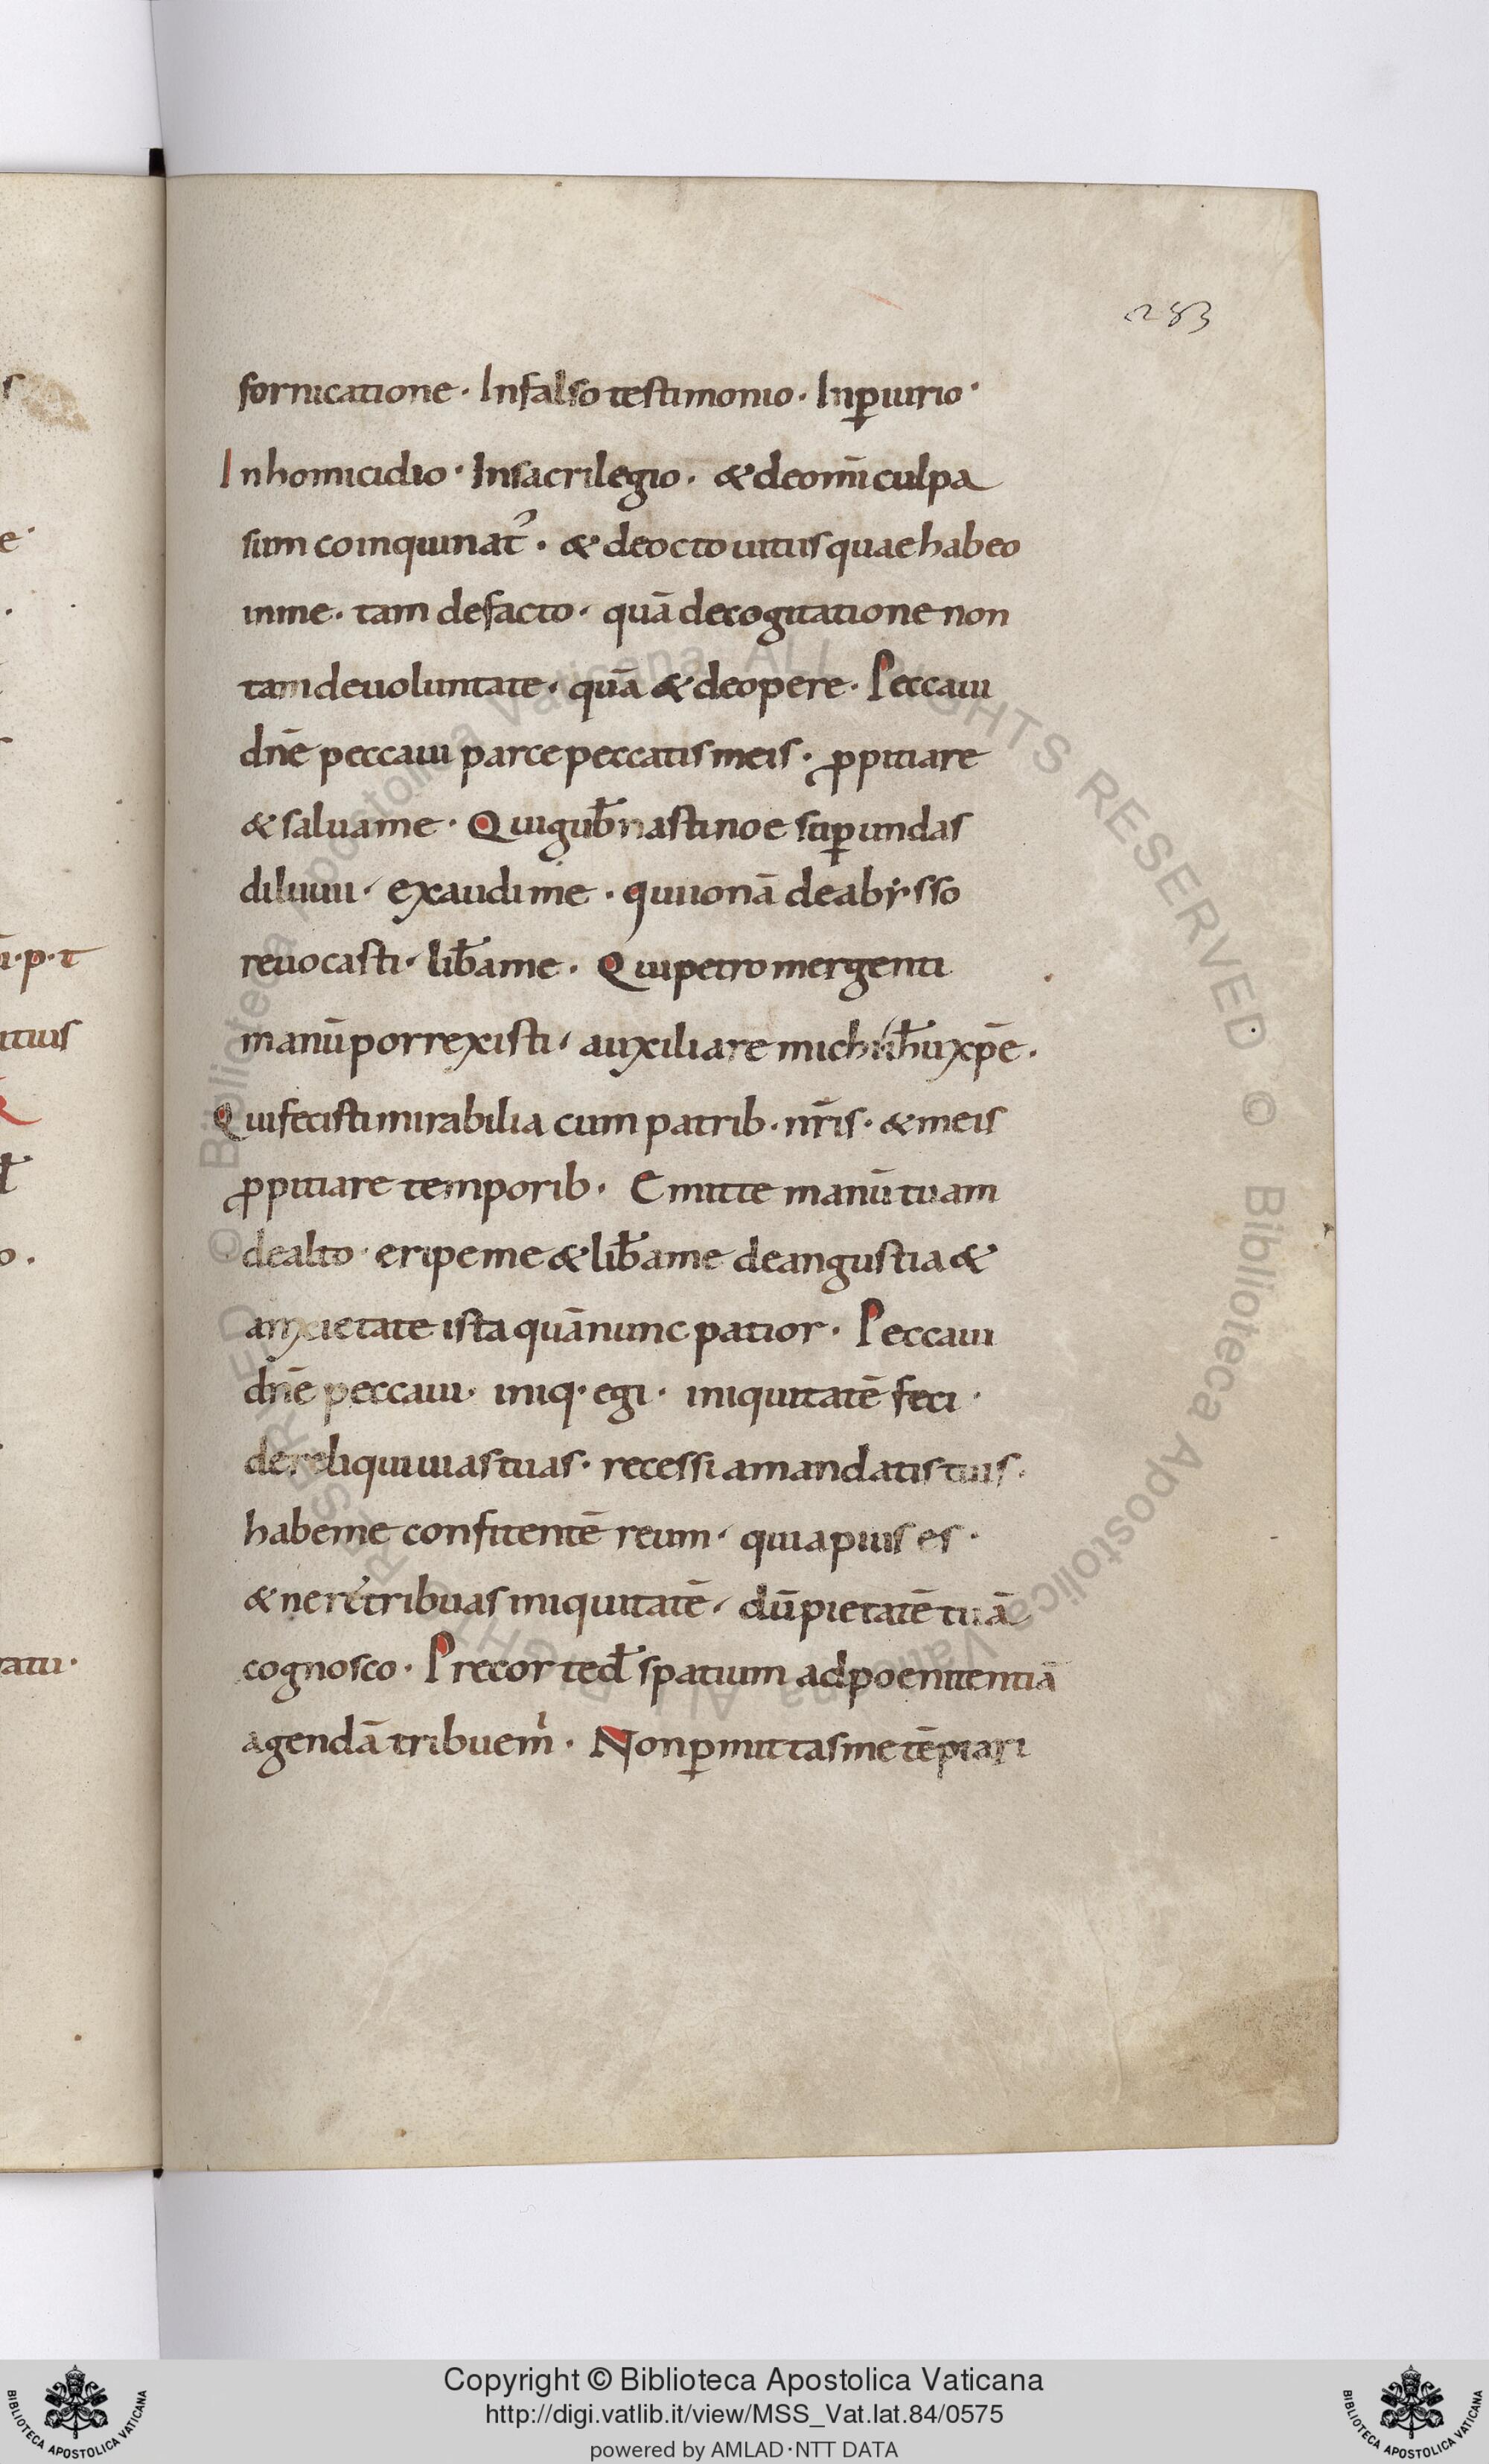 283
fornicatione · In falso testimonio · In ꝑiurio ·
In homicidio · In sacrilegio · & de om̄i culpa
sum coinquinat᾽ · & de octo uitiis quae habeo
in me · tam de facto · quā de cogitatione non
tam de uoluntate · quā & de opere · Peccaui
dn̄e peccaui parce peccatis meis · ꝓpitiare
& salua me · Qui gub̄nasti noe suꝑ undas
diluuii · exaudi me · qui ionā de abysso
reuocasti · lib̄a me · Qui petro mergenti
manū porrexisti · auxiliare michi ih̄u xp̄e ·
Qui fecisti mirabilia cum patrib · nr̄is · & meis
ꝓpitiare temporib · Emitte manū tuam
de alto · eripe me & lib̄a me de angustia &
anxietate ista quā nunc patior · Peccaui
dn̄e peccaui · iniq · egi · iniquitatē feci ·
dereliqui uias tuas · recessi a mandatis tuis ·
habe me confitentē reum · quia pius es ·
& ne retribuas iniquitatē · dū pietatē tuā
cognosco · Precor te d̄s spatium ad poenitentiā
agendā tribue m̍ · Non ꝑmittas me tēptari
Copyright © Biblioteca Apostolica Vaticana
http://digi.vatlib.it/view/MSS_Vat.lat.84/0575
powered by AMLAD·NTT DATA